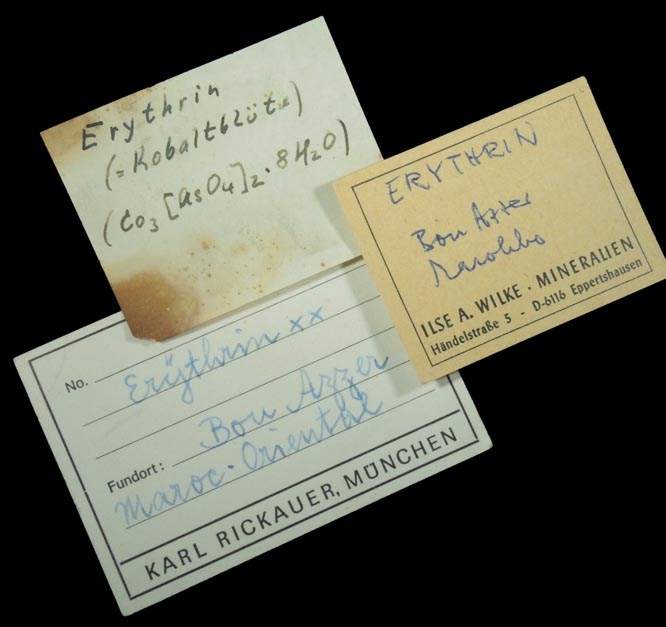 Erythrin
(=Kobaltblüte)
(Co₃[AsO₄]₂·8H₂O)
ERYTHRIN
Bou Azzer
Marokko
ILSE A. WILKE · MINERALIEN
Händelstraße 5 - D-6116 Eppertshausen
No. Erythrin xx
Fundort: Bou Azzer
Maroc-Oriental
KARL RICKAUER, MÜNCHEN